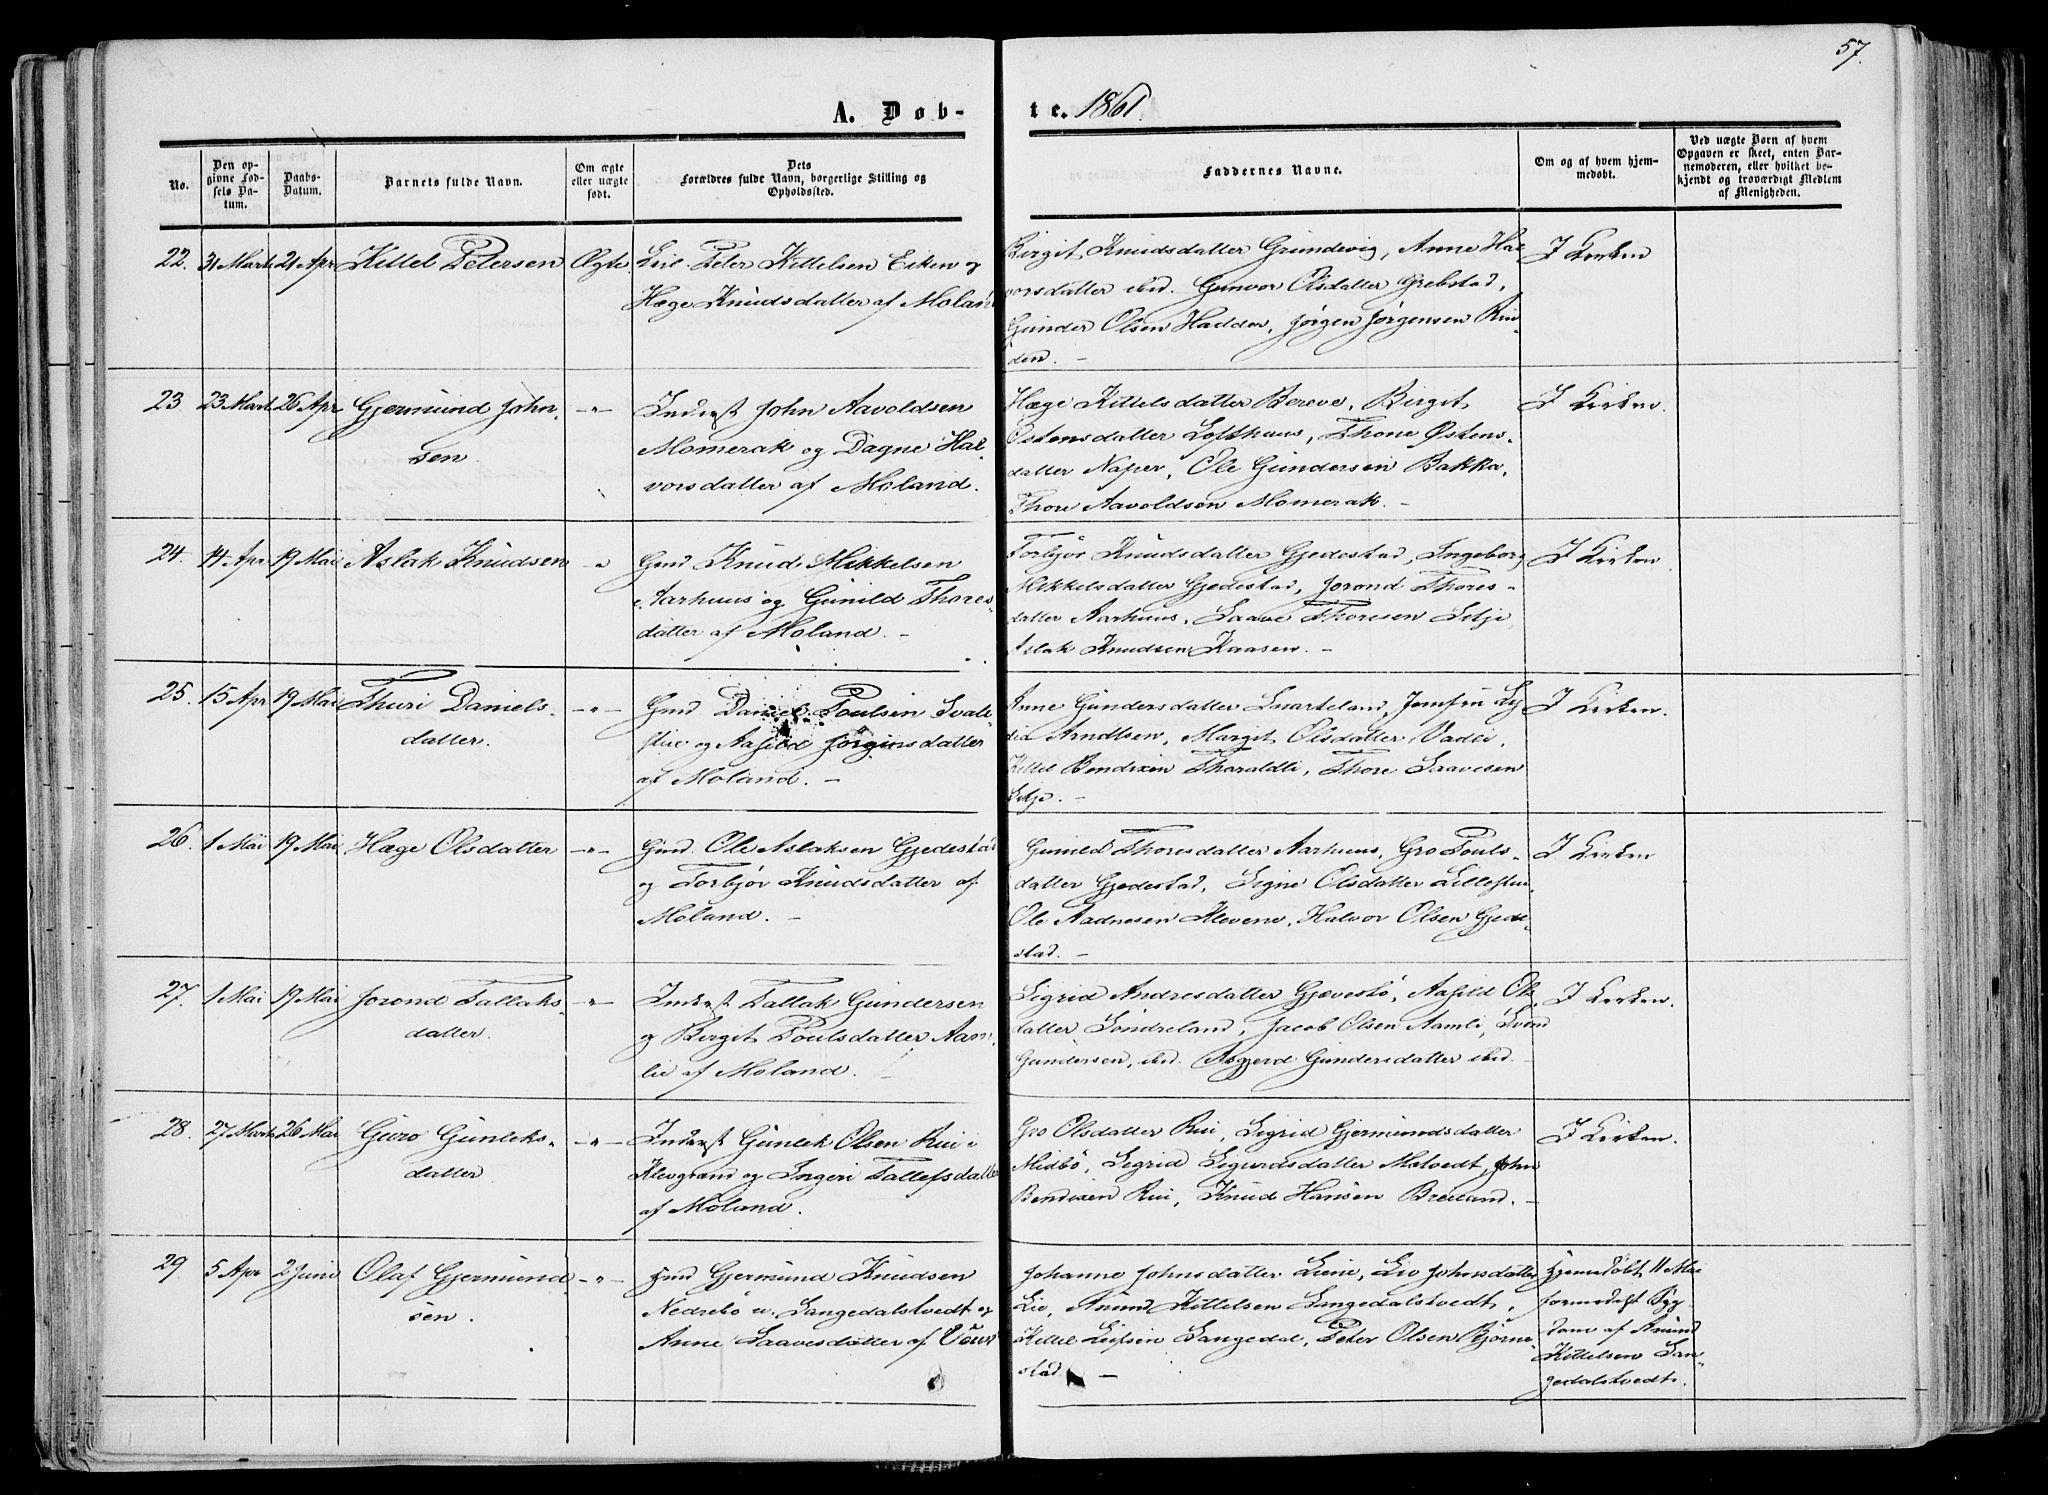 57.
A. Døb-
te. 1861.
No.
Den op-
givne Fød-
sels Da-
tum.
Daabs-
Datum.
Barnets fulde Navn.
Om ægte
eller uægte
født.
Dets
Forældres fulde Navn, borgerlige Stilling og
Opholdssted.
Faddernes Navne.
Om og af hvem hjem-
medøbt.
Ved uægte Børn af hvem
Opgaven er skeet, enten Bar-
nemoderen, eller hvilket be-
kjendt og troværdigt Medlem
af Menigheden.
22. 31 Marts 21 Apr Kittel Petersen Ægte
Peter Kittelsen Eiken og
Hæge Knudsdatter af Moland
Birgit Knudsdatter Grundevig, Anne Hal
vorsdatter ibd. Gunvor Olsdatter Grebstad,
Gunder Olsen Hadder, Jørgen Jørgensen Rin-
den. -
I Kirken
23 23 Marts 26 Apr Gjermund John-
sen. -"-
Inderst John Aavoldsen
Momerak og Dagne Hal-
vorsdatter af Moland.
Hæge Kittelsdatter Bereve, Birgit
Ostensdatter Lofthuus, Thone Østens-
datter Naper, Ole Gundersen Bakka,
Thore Aavoldsen Momerak. -
I Kirken.
24. 14 Apr 19 Mai Aslak Knudsen -"
Gmd Knud Mikkelsen
Aarhuus og Gunild Thores-
datter af Moland. -
Torbjør Knudsdatter Gjedestad, Ingeborg
Mikkelsdatter Gjedestad, Jorond Thores-
datter Aarhuus, Saave Thoresen Lilje
Aslak Knudsen Kaasen. -
I Kirken
25. 15 Apr 19 Mai Thuri Daniels-
datter. -"-
Gmd Daniel Poulsen Sval-
stue og Aasild Jørginsdatter
af Moland. -
Anne Gundersdatter Svarteland, Jomfru Ly
dia Arndtsen, Margit Olsdatter Vadei,
Kittel Bendixen Tharaldli, Thore Saavesen
Lilje. -
I Kirken.
26. 1 Mai 19 Mai Hæge Olsdatter -"-
Gmd. Ole Aslaksen Gjedestad
og Torbjør Knudsdatter af
Moland. -
Gunild Thoresdatter Aarhuus, Gro Pouls-
datter Gjedestad, Signe Olsdatter Lillestue,
Ole Aadnesen Klevene, Halvor Olsen Gjede-
stad. -
I Kirken
27. 1 Mai 19 Mai Jorond Tallaks-
datter. -"-
Inderst Tallak Gundersen
og Birgit Poulsdatter Aam-
lie af Moland.
Sigrid Andresdatter Gjævesbö, Aasild Ols-
datter Söndreland, Jacob Olsen Aamli, Svend
Gundersen, ibd. Asgjerd Gundersdatter ibd. -
I Kirken.
28. 27 Marts 26 Mai Guro Gunleks-
datter -"-
Inderst Gunlek Olsen Rui i
Klevgrend og Ingeri Tallefsdatter
af Moland.
Gro Olsdatter Rui, Sigrid Gjermundsdatter
Midbö, Sigrid Sigurdsdatter Molvedt, John
Bendixen Rui, Knud Hansen Breiland. -
I Kirken.
29. 5 Apr 2 Juni Olaf Gjermund
sen. -"-
Gmd Gjermund Knudsen
Nedrebö u. Langedalstvedt og
Anne Saavesdatter af
Johanne Johnsdatter Lieni, Liv Johnsdatter
Lie, Anund Kittelsen Langedalstvedt,
Kittel Leifsen Langedal, Peter Olsen Bjørne-
stad. -
Hjemmedöbt 11 Mai
formedelst Syg-
dom af Anund
Kittelsen Lan-
gedalstvedt.